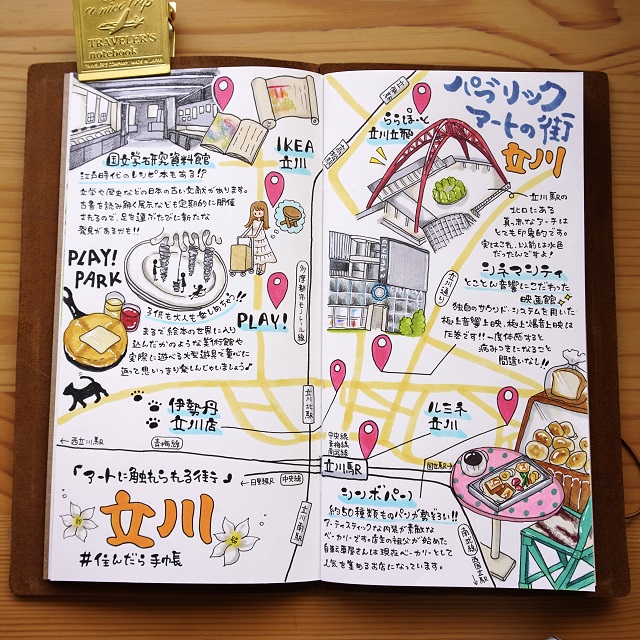 a nice trip
TRAVELER'S
notebook
TRAVELER'S COMPANY MADE IN JAPAN
IKEA
立川
国文学研究資料館
江戸時代のレシピ本もある!?
文学や歴史などの日本の古い文献があります。
古書を読み解く展示なども定期的に開催
されるので、足を運ぶたびに新たな
発見があるかも!!
PLAY!
PARK
PLAY!
子供も大人も楽しめちゃう!!
まるで絵本の世界に入り
込んだかのような美術館や
実際に遊べる大型遊具で童心に
返って思いっきり楽しんじゃいましょう♪
多摩都市モノレール線
伊勢丹
立川店
立川北駅
←西立川駅
青梅線
「アートに触れられる街」
立川
#住んだら手帳
←日野駅
中央線
立川南駅
パブリック
アートの街
立川
ららぽーと
立川立飛
立川駅の
北口にある
真っ赤なアーチは
とても印象的です。
実はこれ、以前は水色
だったんですよ!
シネマシティ
とことん音響にこだわった
映画館♪
独自のサウンドシステムを用いた
極上音響上映、極上爆音上映は
圧巻です!!一度体感すると
病みつきになること
間違いなし!!
立川通り
ルミネ
立川
中央線
青梅線
南武線
立川駅
国立駅→
シンボパン
約50種類ものパンが勢ぞろい!!
アーティスティックな内装が素敵な
ベーカリーです。店主の祖父が始めた
自転車屋さんは現在ベーカリーとして
人気を集めるお店になっています。
南武線
西国立駅